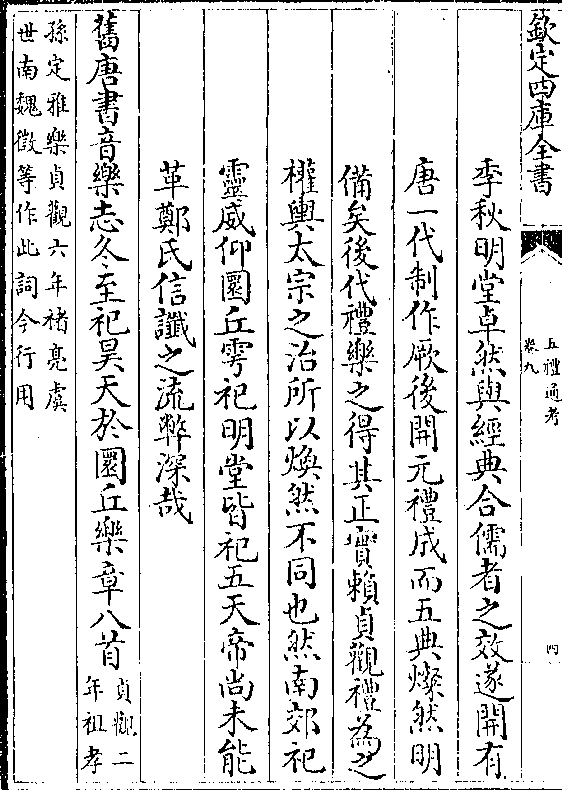 欽定四庫全書
五禮通考
卷九
四
季秋明堂卓然與經典合儒者之效遂開有
唐一代制作厥後開元禮成而五典燦然明
備矣後代禮樂之得其正實賴貞觀禮為之
權輿太宗之治所以煥然不同也然南郊祀
靈威仰圜丘雩祀明堂皆祀五天帝尚未能
革鄭氏信讖之流弊深哉
舊唐書音樂志冬至祀昊天於圜丘樂章八首
貞觀二
年祖孝
孫定雅樂貞觀六年褚亮虞
世南魏徵等作此詞今行用